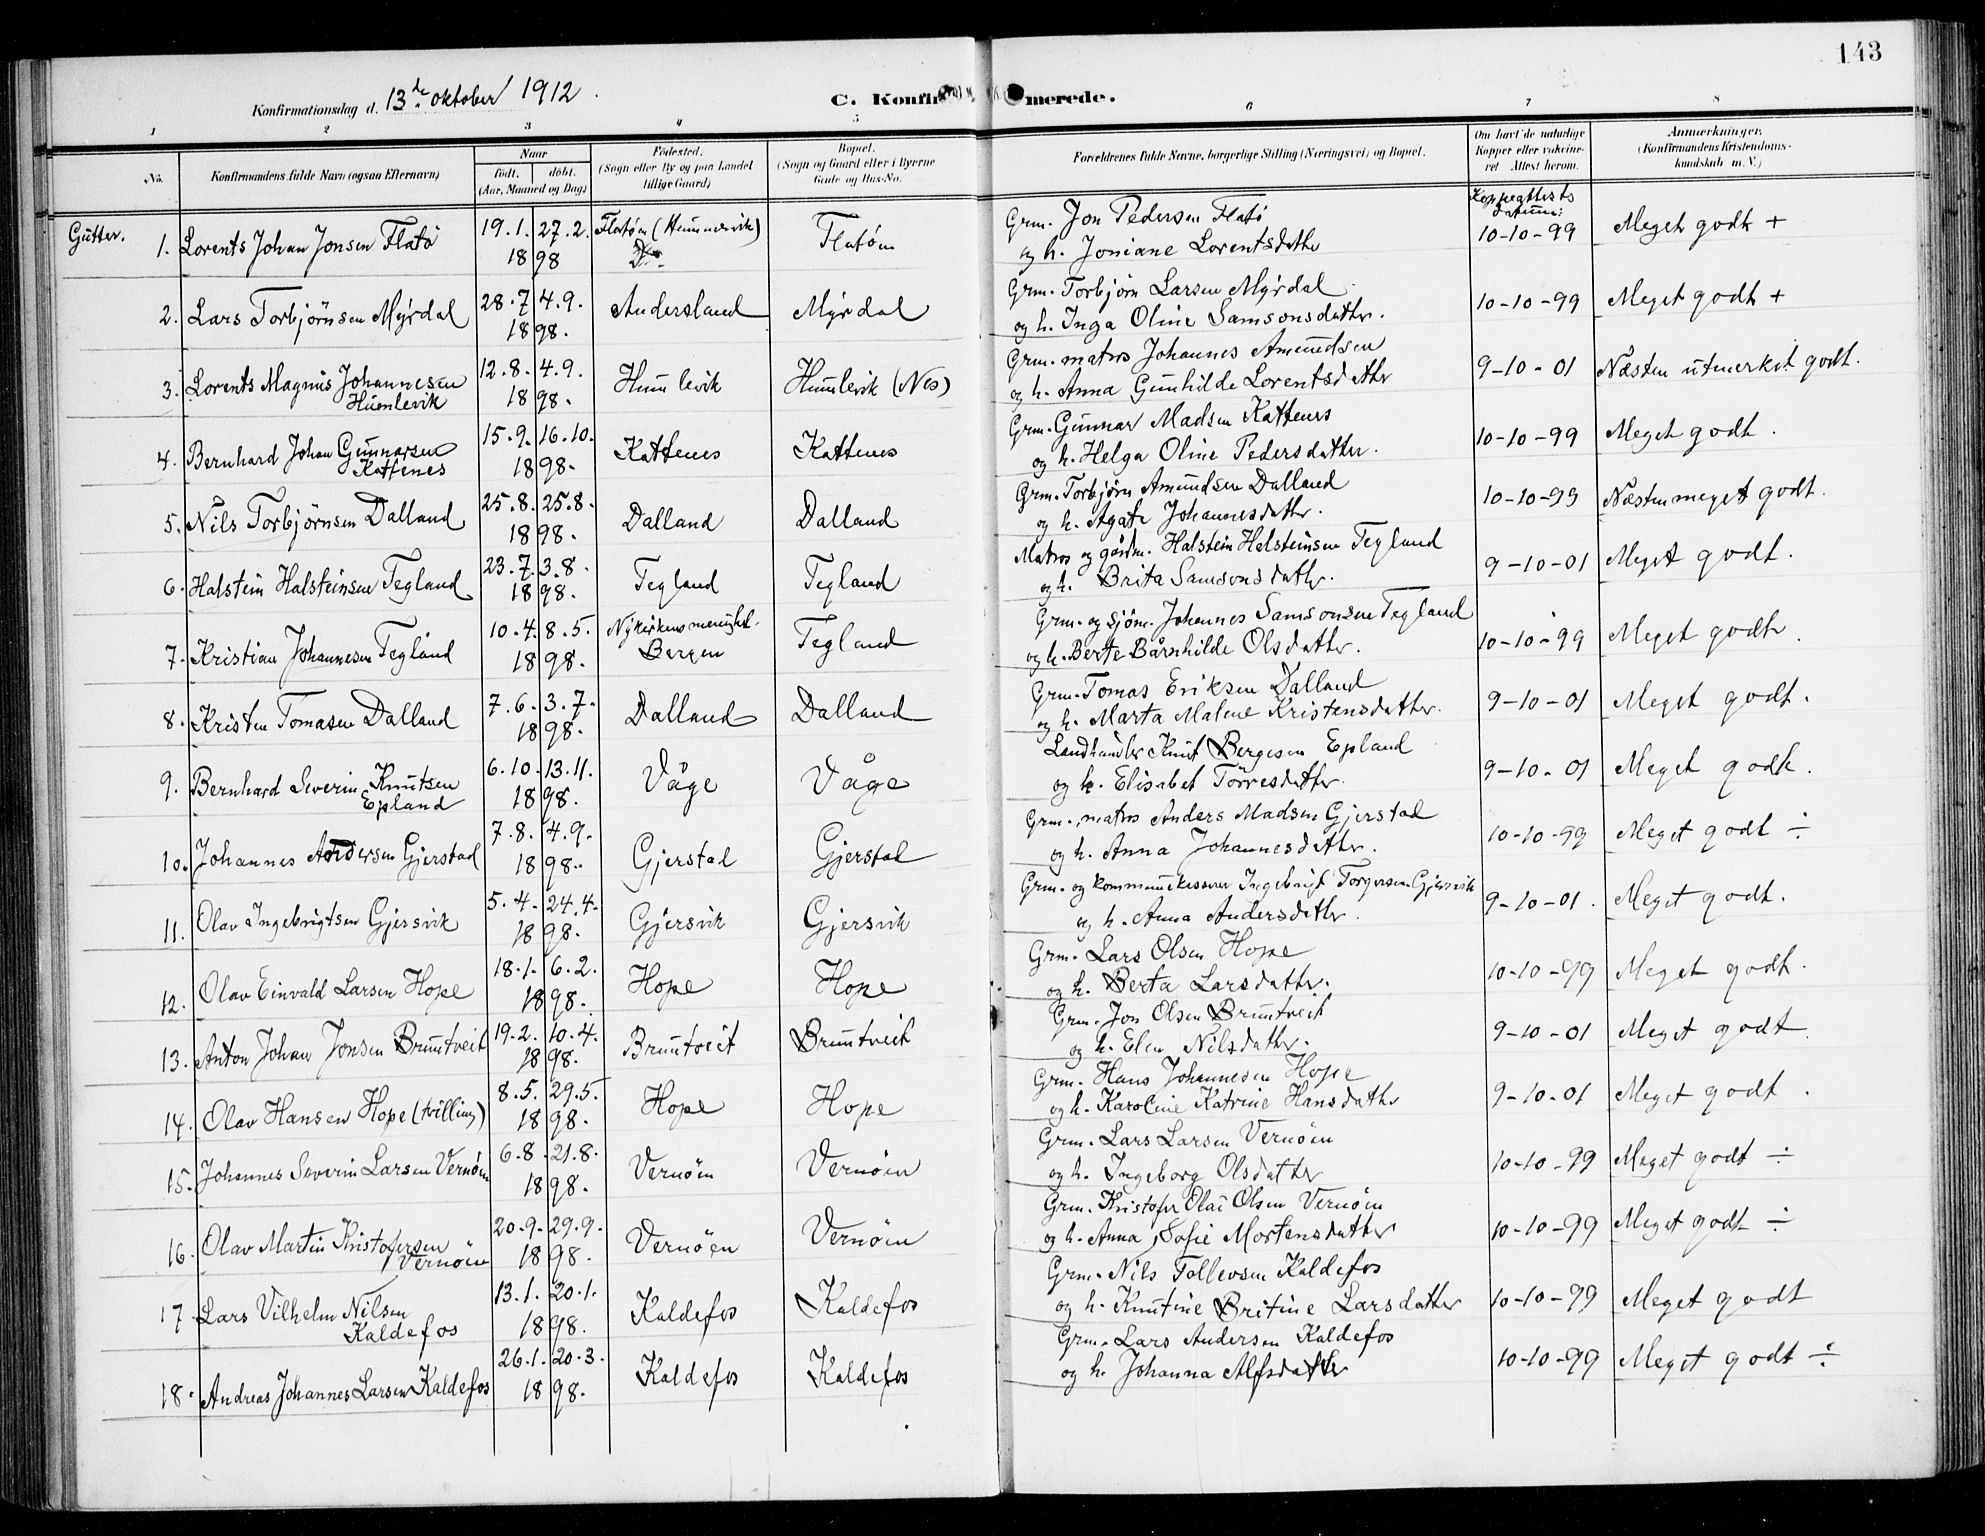 143
Konfirmationsdag d. 13de oktober 1912. C. Konfir merede.
1 2 3 4 5 6 7 8
No. Konfirmandens fulde Navn (ogsaa Efternavn) Naar født. døbt. (Aar, Maaned og Dag) Fødested. (Sogn eller By og paa Landet tillige Gaard) Bopæl. (Sogn og Gaard eller i Byerne Gade og Hus-No. Forældrenes fulde Navne, borgerlige Stilling (Næringsvei) og Bopæl. Om havt de naturlige Kopper eller vakcineret Attest herom. Anmærkninger. (Konfirmandens Kristendomskundskab m. V.)
Gutter. Koppeattests datum:
1. Lorents Johan Jonsen Flatö 19.1. 27.2. 1898 Flatöen (Hummervik) Flatöen Grm. Jon Pedersen Flatö
og h. Joniane Lorentsdatter 10-10-99 Meget godt +
2. Lars Torbjörnsen Mýrdal 28.7 4.9. 1898. Andersland Myrdal Grm. Torbjörn Larsen Myrdal
og h. Inga Oline Samsonsdatter. 10-10-99 Meget godt +
3. Lorents Magnus Johannesen Humlevik 12.8. 4.9. 1898. Humlevik Humlevik (Nes) Grm. matros Johannes Amundsen
og h. Anna Gunhilde Lorentsdatter 9-10-01 Næsten utmerket godt.
4. Bernhard Johan Gunnarsen Kattenes 15.9. 16.10. 1898. Kattenes Kattenes Grm. Gunnar Madsen Kattenes
og h. Helga Oline Pedersdatter. 10-10-99 Meget godt.
5. Nils Torbjörnsen Dalland 25.8. 25.8. 1898. Dalland Dalland Grm. Torbjörn Amundsen Dalland
og h. Agate Johannesdatter. 10-10-99 Næsten meget godt.
6. Halstein Halsteinsen Tegland 23.7. 3.8. 1898. Tegland Tegland Matros og gårdm. Halstein Halsteinsen Tegland
og h. Brita Samsonsdatter. 9-10-01 Meget godt.
7. Kristian Johannesen Tegland 10.4. 8.5. 1898. Nykirkens menighet. Bergen Tegland Grm. og sjöm. Johannes Samsonsen Tegland
og h. Berte Bårnhilde Olsdatter. 10-10-99 Meget godt.
8. Kristen Tomasen Dalland 7.6. 3.7. 1898. Dalland Dalland Grm. Tomas Eriksen Dalland
og h. Marta Malene Kristensdatter. 9-10-01 Meget godt.
9. Bernhard Severin Knutsen Epland 6.10. 13.11. 1898. Våge Våge Landhandler Knut Bergesen Epland
og h. Elisabet Törresdatter. 9-10-01 Meget godt.
10. Johannes Andersen Gjerstad 7.8. 4.9. 1898. Gjerstad Gjerstad Grm. matros Anders Madsen Gjerstad
og h. Anna Johannesdatter. 10-10-99 Meget godt ÷
11. Olav Ingebrigtsen Gjersvik 5.4. 24.4. 1898. Gjersvik Gjersvik Grm. og kommunekasserer Ingebrigt Torgersen Gjersvik
og h. Anna Andersdatter. 9-10-01. Meget godt.
12. Olav Einvald Larsen Hope 18.1. 6.2. 1898. Hope Hope Grm. Lars Olsen Hope
og h. Berta Larsdatter. 10-10-99 Meget godt.
13. Anton Johan Jonsen Bruntveit 19.2. 10.4. 1898. Bruntveit Bruntveit Grm. Jon Olsen Bruntveit
og h. Elen Nilsdatter. 9-10-01 Meget godt.
14. Olav Hansen Hope (tvilling) 8.5. 29.5. 1898. Hope Hope Grm. Hans Johannesen Hope
og h. Karoline Katrine Hansdatter 9-10-01 Meget godt.
15. Johannes Severin Larsen Vernöen 6.8. 21.8. 1898. Vernöen Vernöen Grm. Lars Larsen Vernöen
og h. Ingeborg Olsdatter 10-10-99 Meget godt ÷
16. Olav Martin Kristofersen Vernöen 20.9. 29.9. 1898. Vernöen Vernöen Grm. Kristofer Olai Olsen Vernöen
og h. Anna Sofie Mortensdatter 10-10-99 Meget godt ÷
17. Lars Vilhelm Nilsen Kaldefos 13.1. 20.1. 1898. Kaldefos Kaldefos Grm. Nils Tollevsen Kaldefos
og h. Knutine Britine Larsdatter 10-10-99 Meget godt
18. Andreas Johannes Larsen Kaldefos 26.1. 20.3. 1898. Kaldefos Kaldefos Grm. Lars Andersen Kaldefos
og h. Johanna Alfsdatter 10-10-99 Meget godt ÷